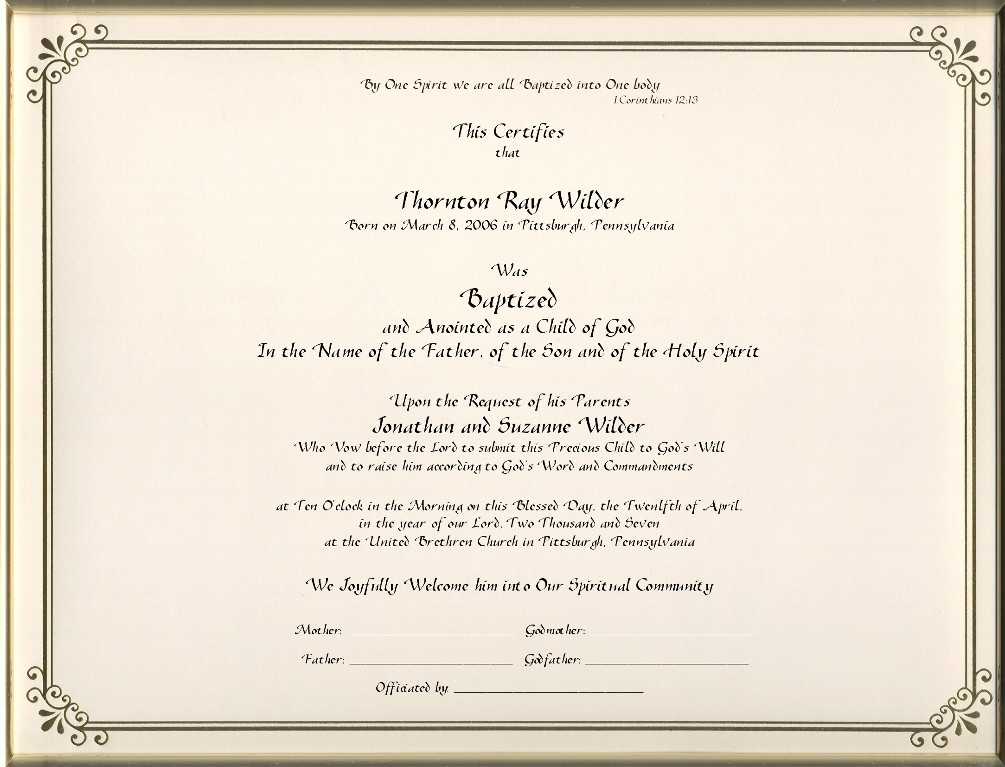 By One Spirit we are all Baptized into One body
1 Corinthians 12:13
This Certifies
that
Thornton Ray Wilder
Born on March 8, 2006 in Pittsburgh, Pennsylvania
Was
Baptized
and Anointed as a Child of God
In the Name of the Father, of the Son and of the Holy Spirit
Upon the Request of his Parents
Jonathan and Suzanne Wilder
Who Vow before the Lord to submit this Precious Child to God's Will
and to raise him according to God's Word and Commandments
at Ten O'clock in the Morning on this Blessed Day, the Twenlfth of April,
in the year of our Lord, Two Thousand and Seven
at the United Brethren Church in Pittsburgh, Pennsylvania
We Joyfully Welcome him into Our Spiritual Community
Mother: Godmother:
Father: Godfather:
Officiated by: